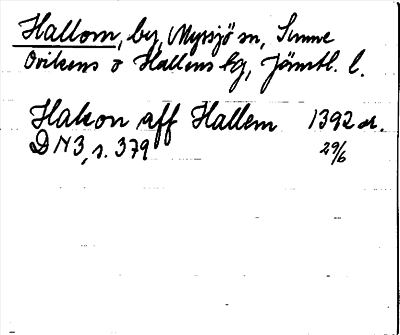 Hallom, by, Myssjö sn, Sunne
Ovikens o Hallens tg, Jämtl. l.
Hakon aff Hallem 1392 or.
DN 3, s. 379 29/6